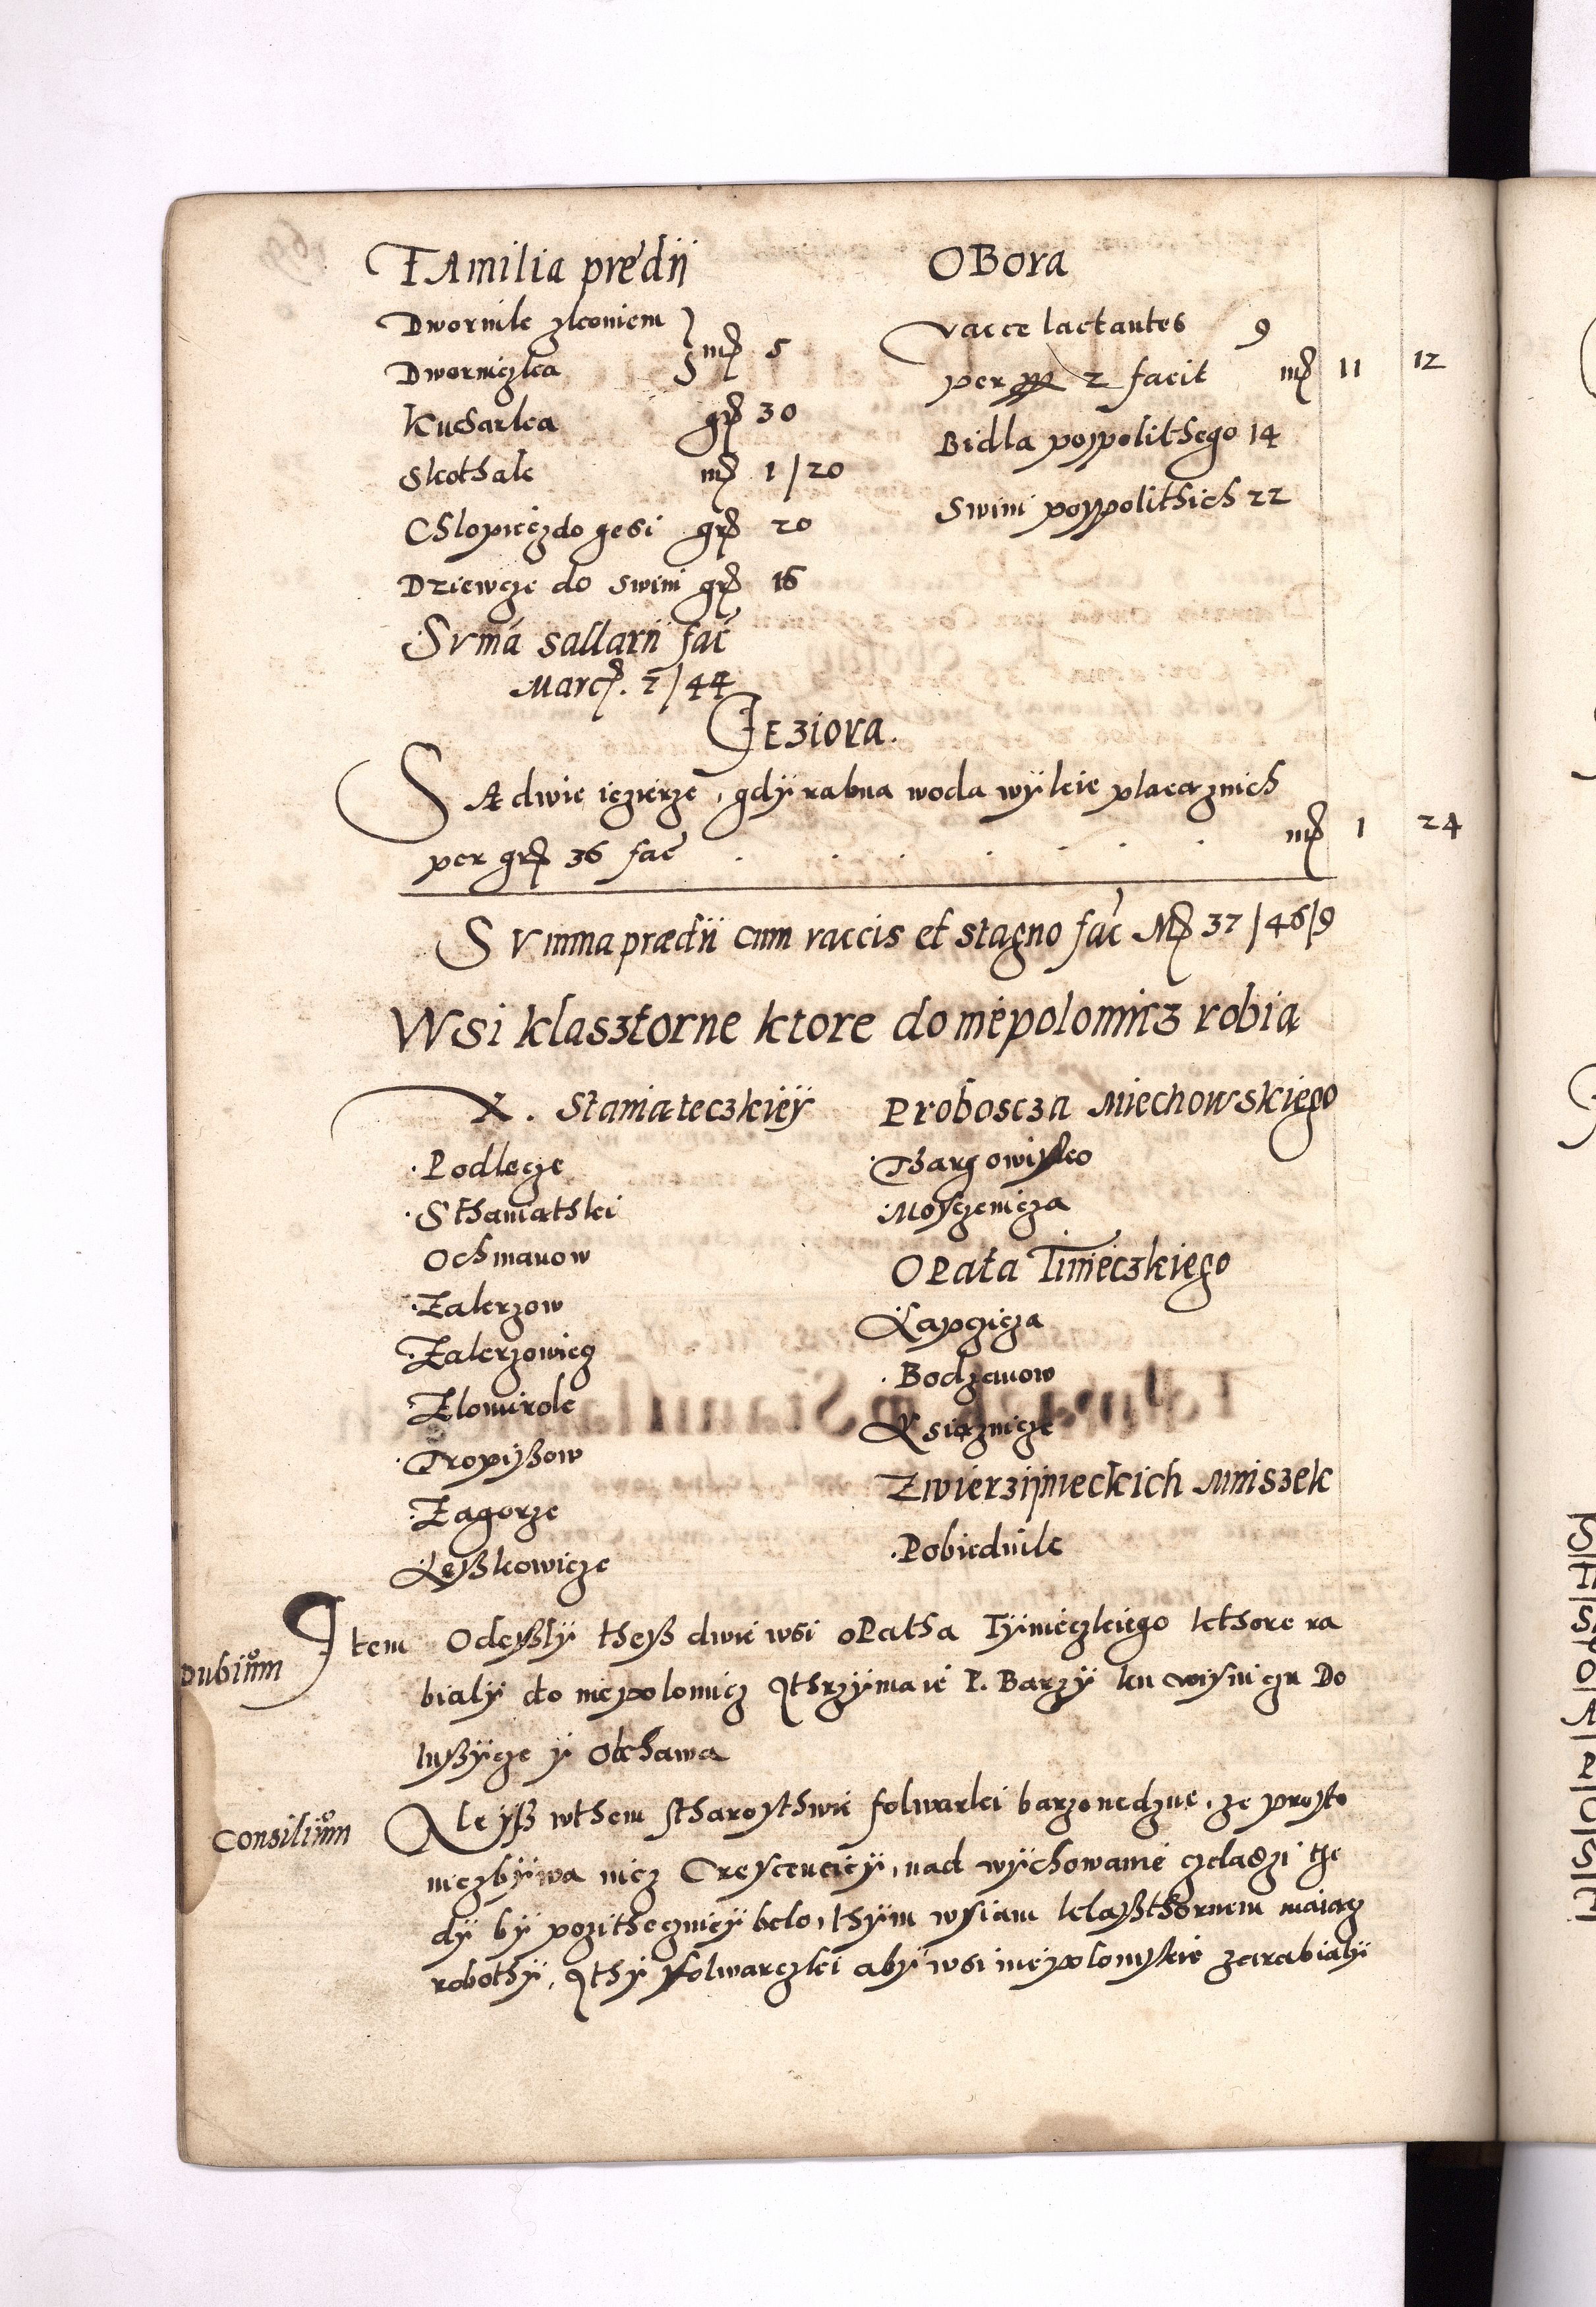 FAmilia predii
Dwornik zkoniem
Dworniczka mrc 5
Kucharka gr 30
Skothak mrc 1/20
Chlopiecz do gesi gr 20
Dziewcze do swini gr 16
Sumā sallarii fać
Març. 2/44
OBora
Vacce lactantes 9
per 2 facit mrc 11 12
Bidla pospolithego 14
Swini pospolithich 22
Jeziora.
SĄ dwie iezierze, gdÿ rabna woda wÿleie placą znich
per gr 36 fać mrc 1 24
SVmma prædii cum vaccis et stagno fać Mrc 37/46/9
Wsi klasztorne ktore do niepolomicz robią
X. Staniąteczkiëÿ
Podlęze
Sthaniąthki
Ochmanow
Zakrzow
Zakrzowiecz
Zlomirole
Tropißow
Zagorze
Leßkowicze
Proboscza Miechowskięgo
Thargowisko
Moszczenicza
OPata Tinieczkięgo
Kapczicza
Bodzanow
Xsiąznicze
Zwierzÿnieckich Mniszek
Pobiednik
Item Odeßlÿ theß dwie wsi oPatha Tÿnieczkiego kthore ra
Dubium
bialÿ do niepolomicz Ithrzÿma ie P. Barzÿ ku wisniczu Do
lußÿcze ÿ Okhawa
Consilium
Ale ÿß wthem stharosthwie folwarki barzo nedzne, ze prosto
niezbÿwa nicz Crescenciÿ, nad wÿchowanie czeladzi the
dÿ bÿ pozithecznieÿ belo, thÿm wsiam klaßthornem maiącz
robothÿ, Ithÿ folwarczki abÿ wsi niepolomskie zarabialÿ